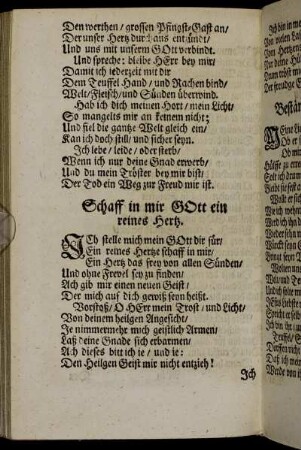 Den werthen/ grossen Pfingst-Gast an/
Der unser Hertz durch uns entzündt/
Und uns mit unserm GOtt verbindt.
Und spreche: bleibe HErr bey mir/
Damit ich jederzeit mit dir
Dem Teuffel Hand/ und Rachen bind/
Welt/ Fleisch/ und Sünden überwind.
Hab ich dich meinen Hort/ mein Licht/
So mangelts mir an keinem nicht;
Und fiel die gantze Welt gleich ein/
Kan ich doch still/ und sicher seyn.
Ich lebe/ leide/ oder sterb/
Wenn ich nur deine Gnad erwerb/
Und du mein Tröster bey mir bist/
Der Tod ein Weg zur Freud mir ist.
Schaff in mir GOtt ein
reines Hertz.
ICh stelle mich mein GOtt dir für/
Ein reines Hertze schaff in mir/
Ein Hertz das frey von allen Sünden/
Und ohne Frevel sey zu finden/
Ach gib mir einen neuen Geist/
Der mich auf dich gewiß seyn heißt.
Verstoß/ O HErr mein Trost/ und Licht/
Von deinem heilgen Angesicht/
Je nimmermehr mich geistlich Armen/
Laß deine Gnade sich erbarmen/
Ach dieses bitt ich ie/ und ie:
Den Heilgen Geist mir nicht entzieh!
Ich